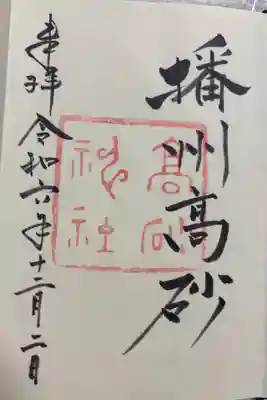 播州高砂
高砂
神社
奉拝
令和六年十二月二日